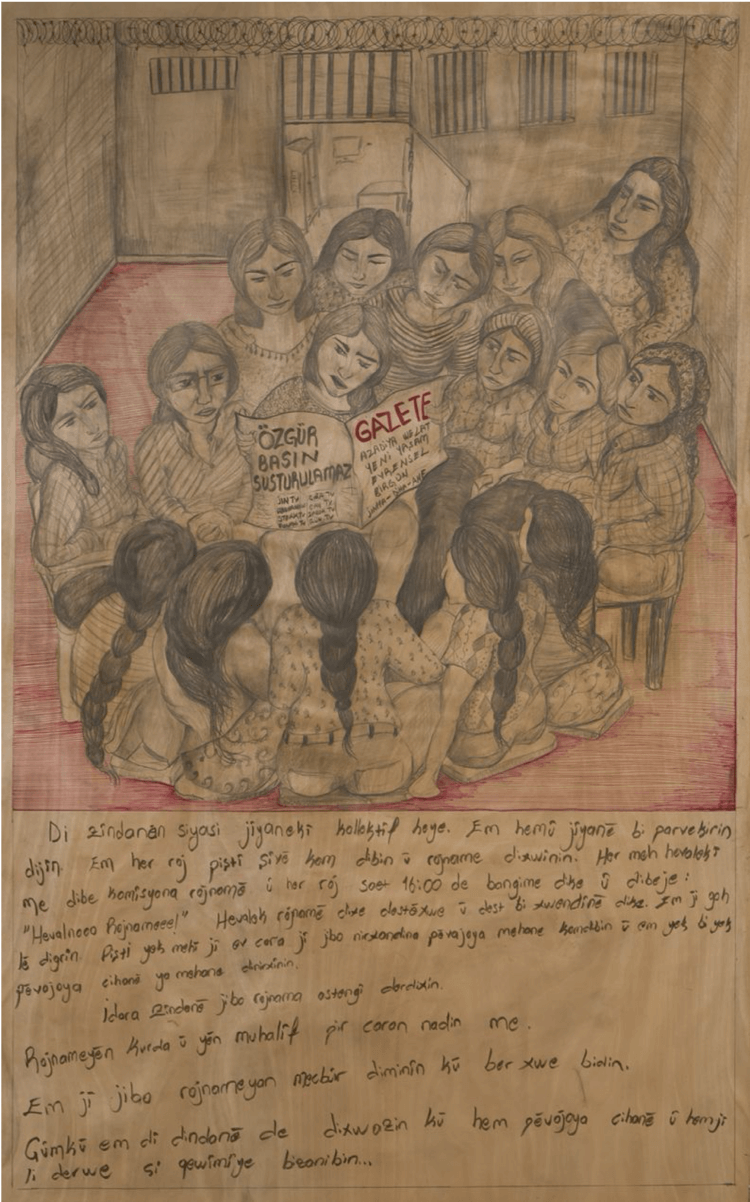 ÖZGÜR
BASIN
SUSTURULAMAZ
GAZETE
AZADIYA WELAT
YENİ YAŞAM
EVRENSEL
BİRGÜN
Di zindanên siyasi jiyanekî kollektif heye. Em hemû jîyanê bi parvekirin
dijîn. Em her roj piştî şîvê kom dibin û rojname dixwînin. Her meh hevalekî
me dibe komisyona rojnamê û her roj saet 16:00 de bangime dike û dibêje:
"Hevalnooo Rojnameee!" Hevalek rojnamê dixe destêxwe û dest bi xwendinê dike. Em ji goh
lê digrin. Piştî yek mehê ji ev cara ji jibo nirxandina pêvajoya mehane komdibin û em yek bi yek
pêvajoya cihanê ya mehane dinirxînin.
Îdara zindanê jibo rojnama astengî derdixin.
Rojnameyên Kurda û yên muhalif pir caran nadin me.
Em jî jibo rojnameyan mecbûr diminin kû ber xwe bidin.
Gûmkû em di dindanê de dixwazin kû hem pêvajoya cihanê û hemji
li derwe çi qewimîye bizanibin...